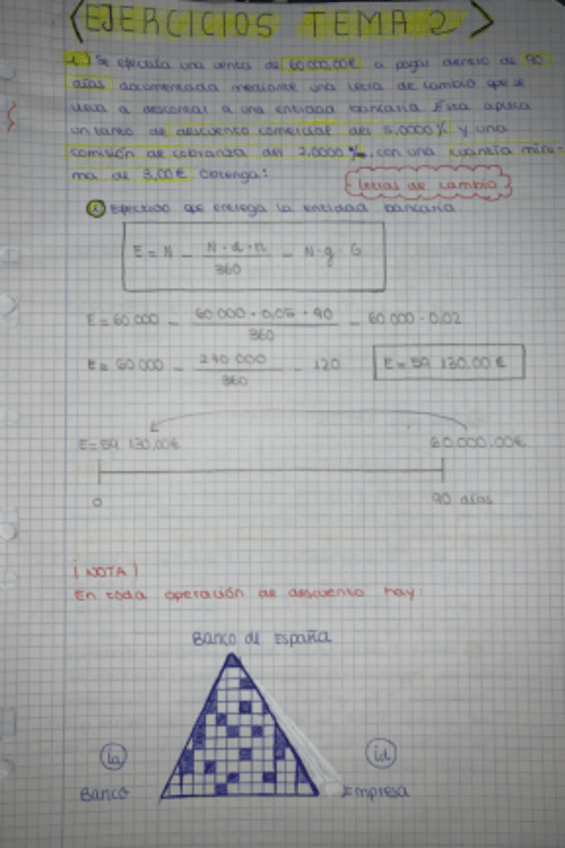 EJERCICIOS TEMA 2
1. Se efectúa una venta de 60.000,00€ a pagar dentro de 90
días documentada mediante una letra de cambio que se
lleva a descontar a una entidad bancaria. Ésta aplica
un tanto de descuento comercial del 5,0000% y una
comisión de cobranza del 2,0000‰, con una cuantía míni-
ma de 3,00€. Obtenga:
letras de cambio
1 Efectivo que entrega la entidad bancaria
E = N - N·d·n / 360 - N·g - G
E = 60.000 - 60.000 · 0,05 · 90 / 360 - 60.000 · 0,02
E = 60.000 - 270.000 / 360 - 120 E = 59.130,00€
E = 59.130,00€ 60.000,00€
0 90 días
¡NOTA!
En toda operación de descuento hay:
Banco de España
ia id
Banco Empresa